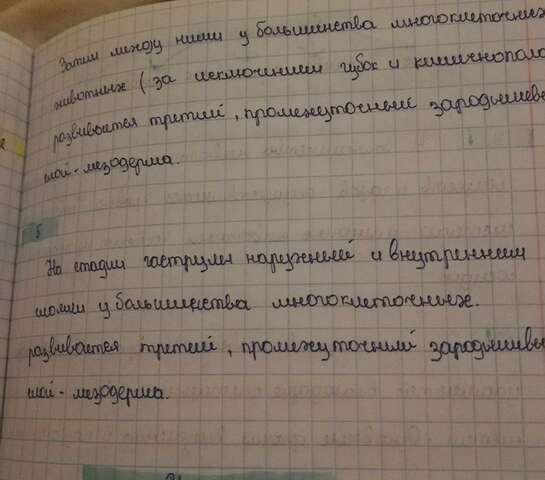 Затем между ними у большинства многоклеточных
животных (за исключением губок и кишечнополо
развивается третий, промежуточный зародышевы
слой - мезодерма.
5
На стадии гаструлы наружный и внутренним
слоями у большинства многоклеточных.
развивается третий, промежуточний зародышевы
слой - мезодерма.